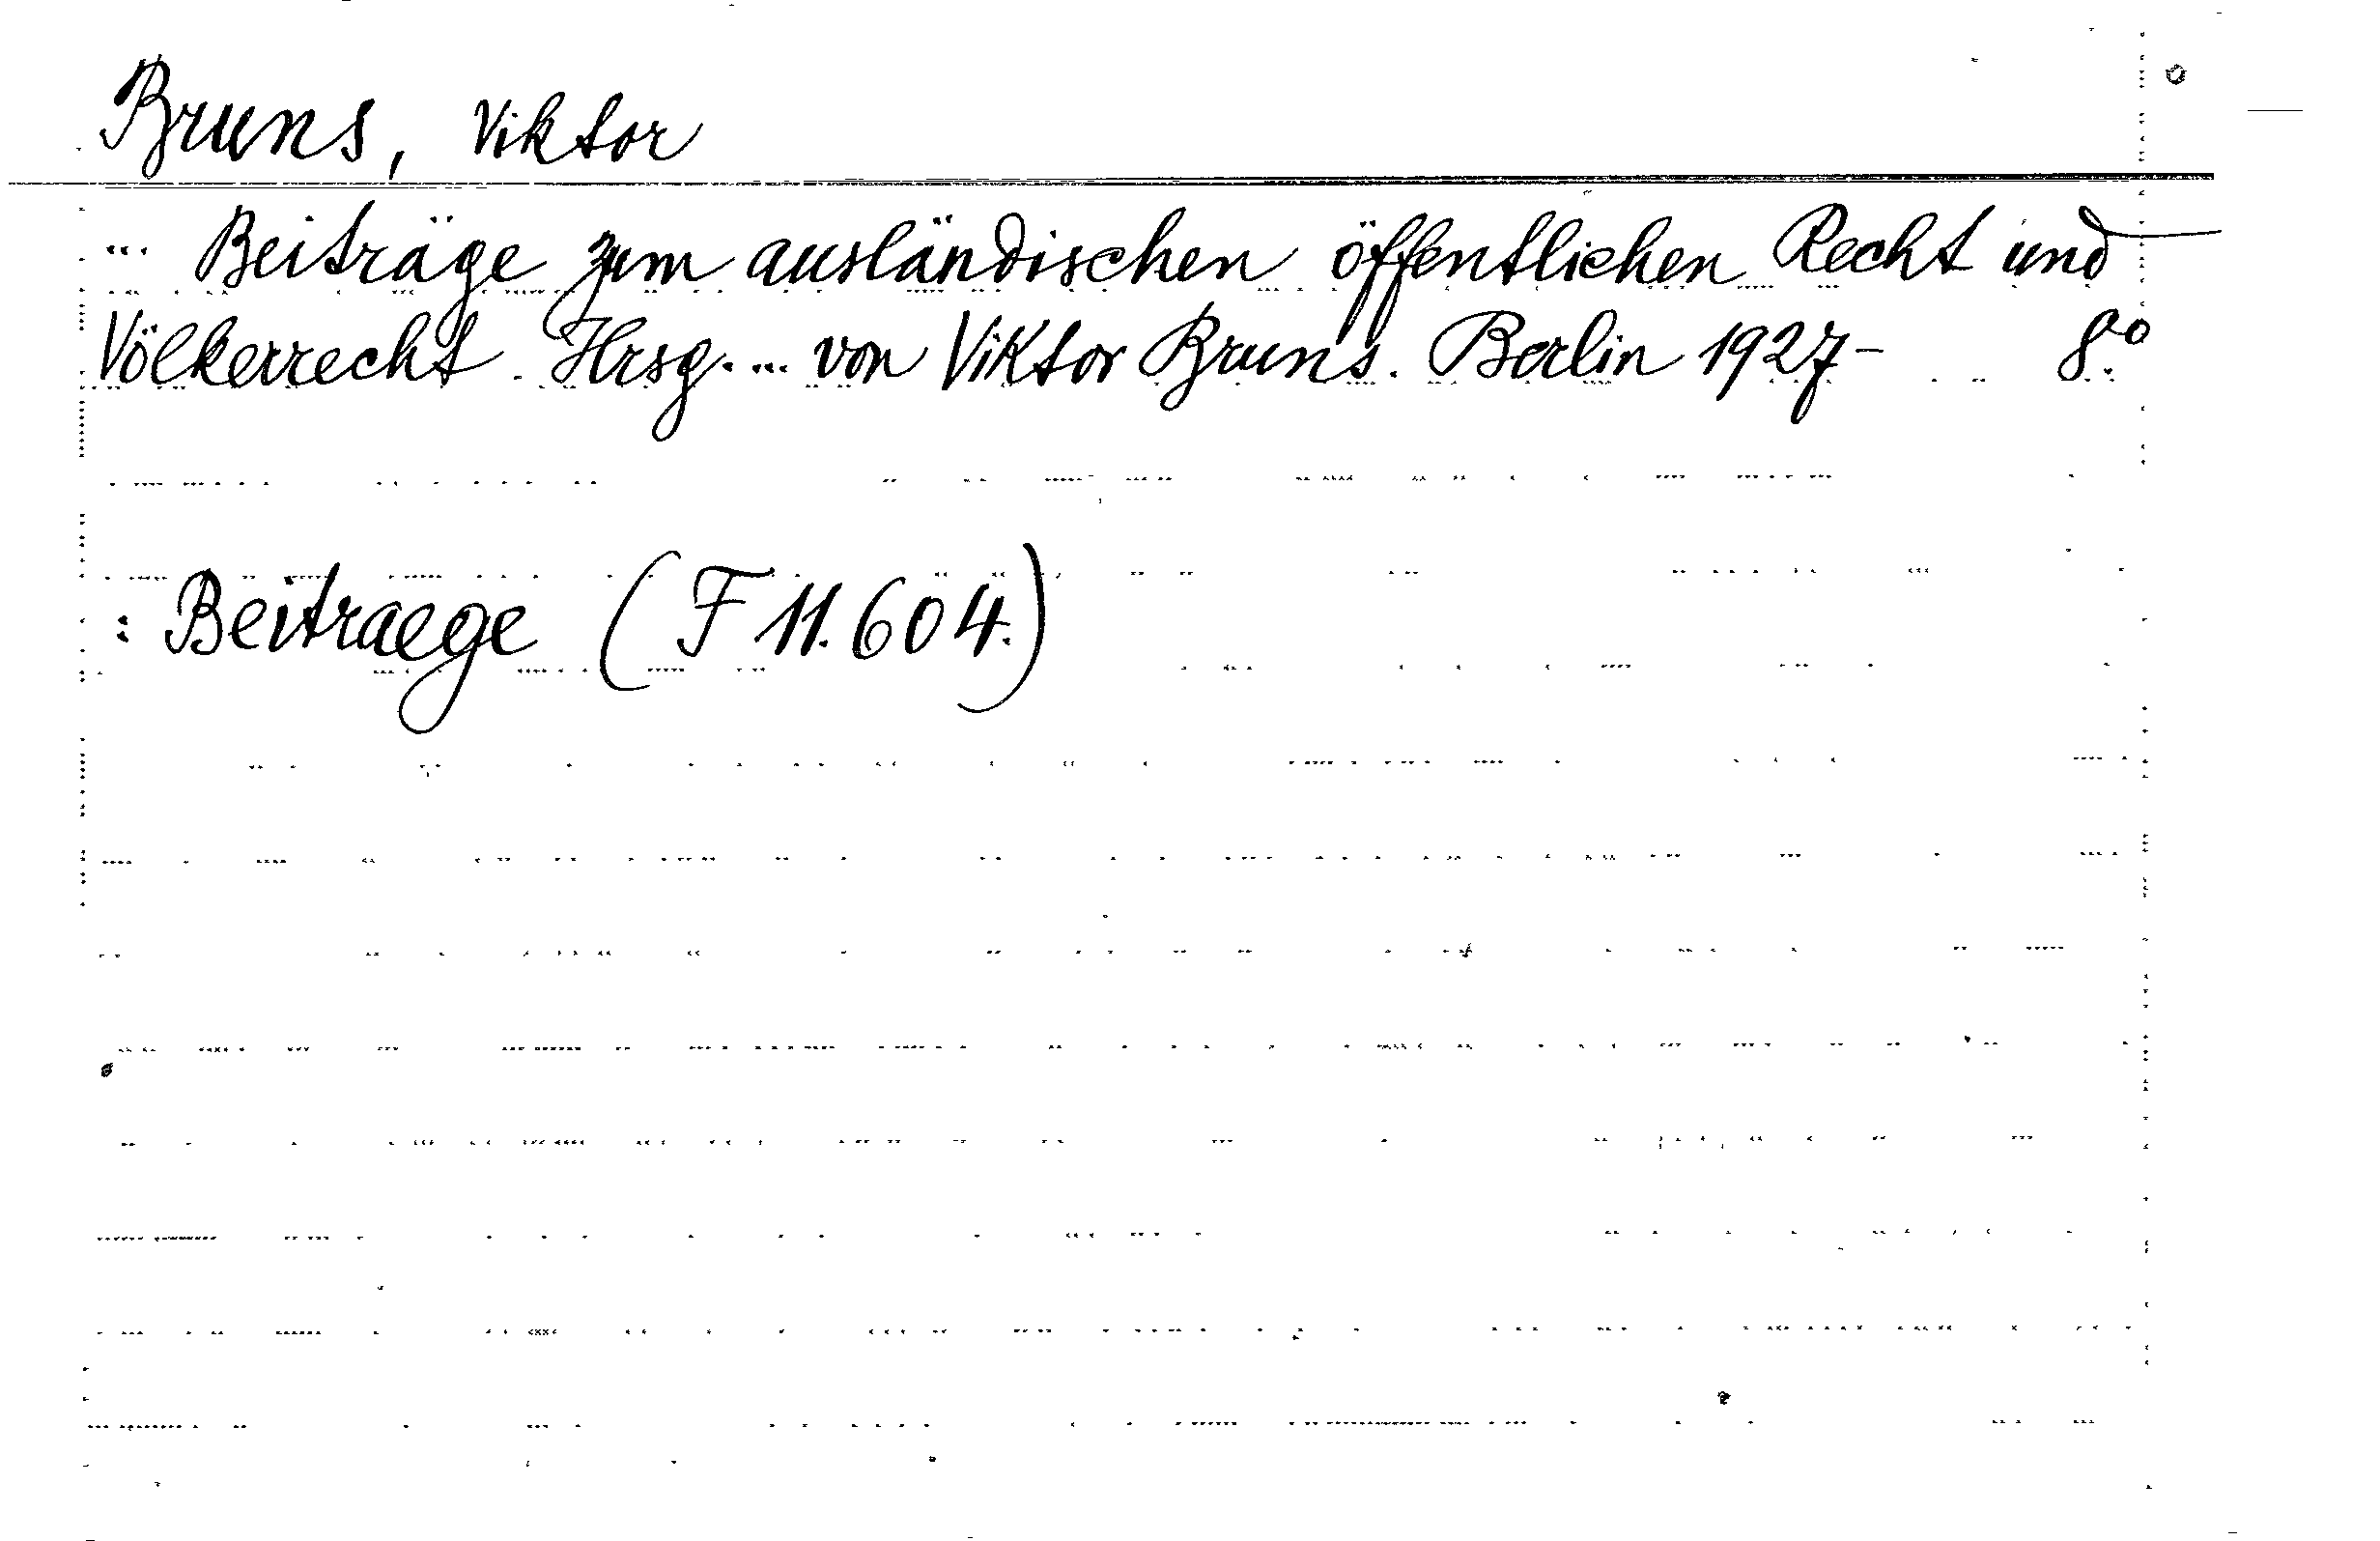 Bruns, Viktor
... Beiträge zum ausländischen öffentlichen Recht und
Völkerrecht. Hrsg. ... von Viktor Bruns. Berlin 1927- 8°.
: Beitraege (F 11.604.)